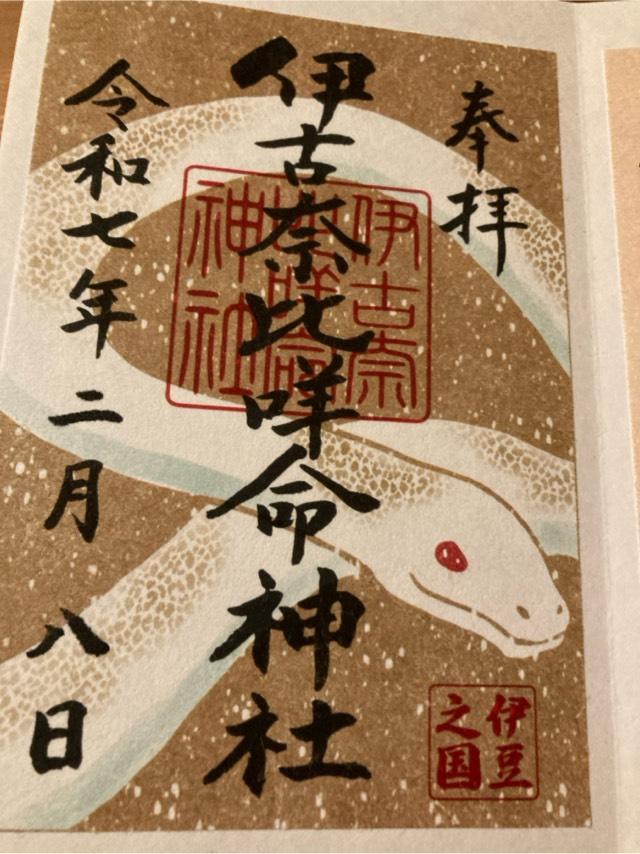 奉拝
伊古奈比咩命神社
伊古奈
比咩命
神社
令和七年二月八日
伊豆
之国